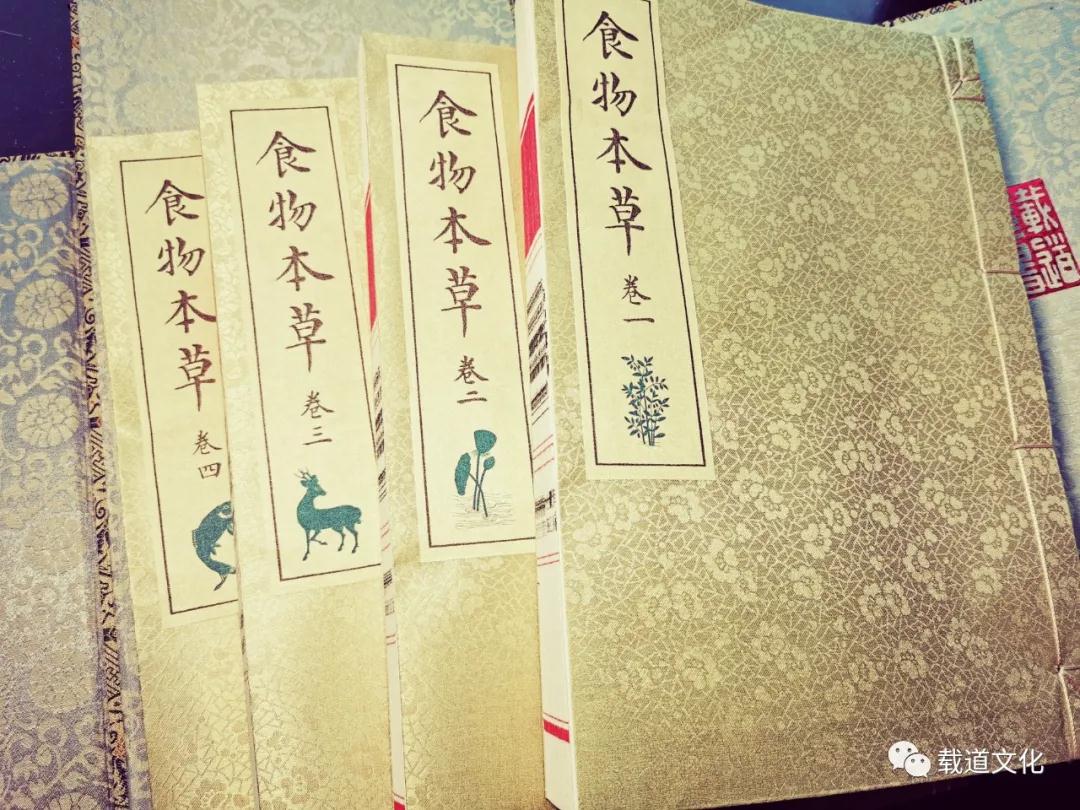 食物本草
卷一
食物本草
卷二
食物本草
卷三
食物本草
卷四
載道
载道文化